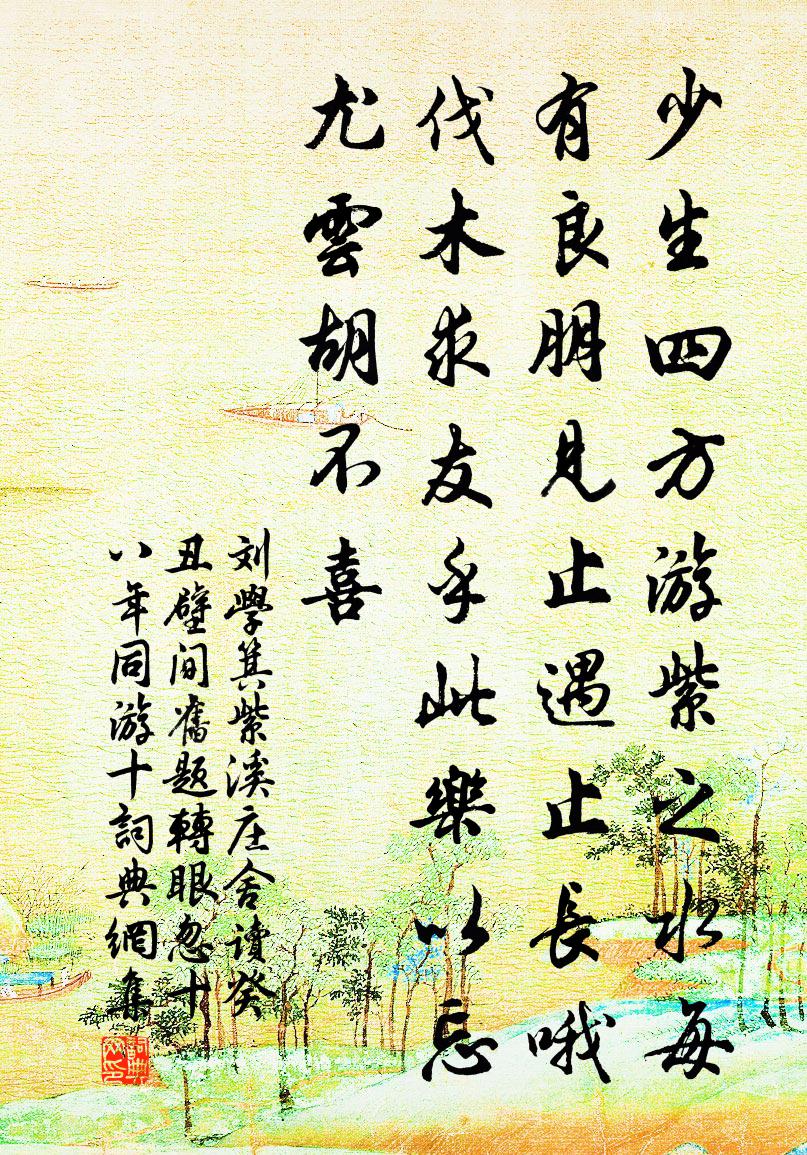 少生四方游紫之水每
有良朋見止遇止長哦
伐木求友乎此樂以忘
尤雲胡不喜
刘學箕紫溪庄舍讀癸
丑壁间舊题轉眼忽十
八年同游十詞典網集